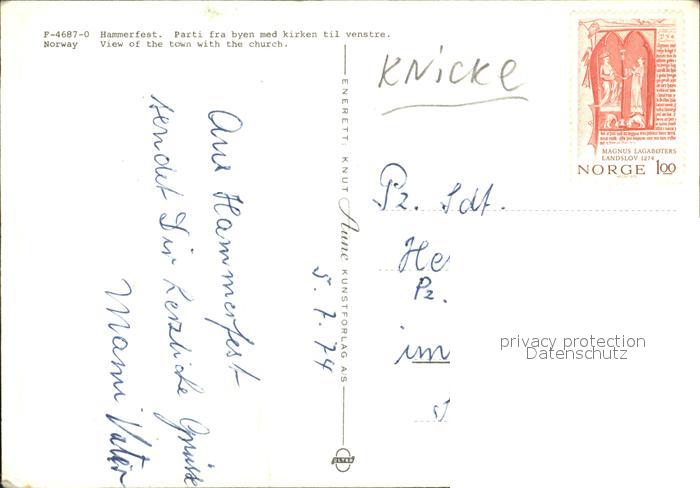 F-4687-0 Hammerfest. Parti fra byen med kirken til venstre.
Norway View of the town with the church.
Knicke
MAGNUS LAGABØTERS
LANDSLOV 1274
NORGE 1.00
ENERETT: KNUT Aune KUNSTFORLAG A/S
5.7.74
Aus Hammerfest
sendet Dir herzliche Grüsse
Mami Vater
Pz. Sdt.
He
Pz.
im
privacy protection
Datenschutz